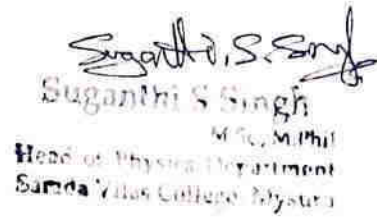 Suganthi.S.Singh
Suganthi S Singh
M.Sc, M.Phil
Head of Physics Department
Sarada Vilas College, Mysuru